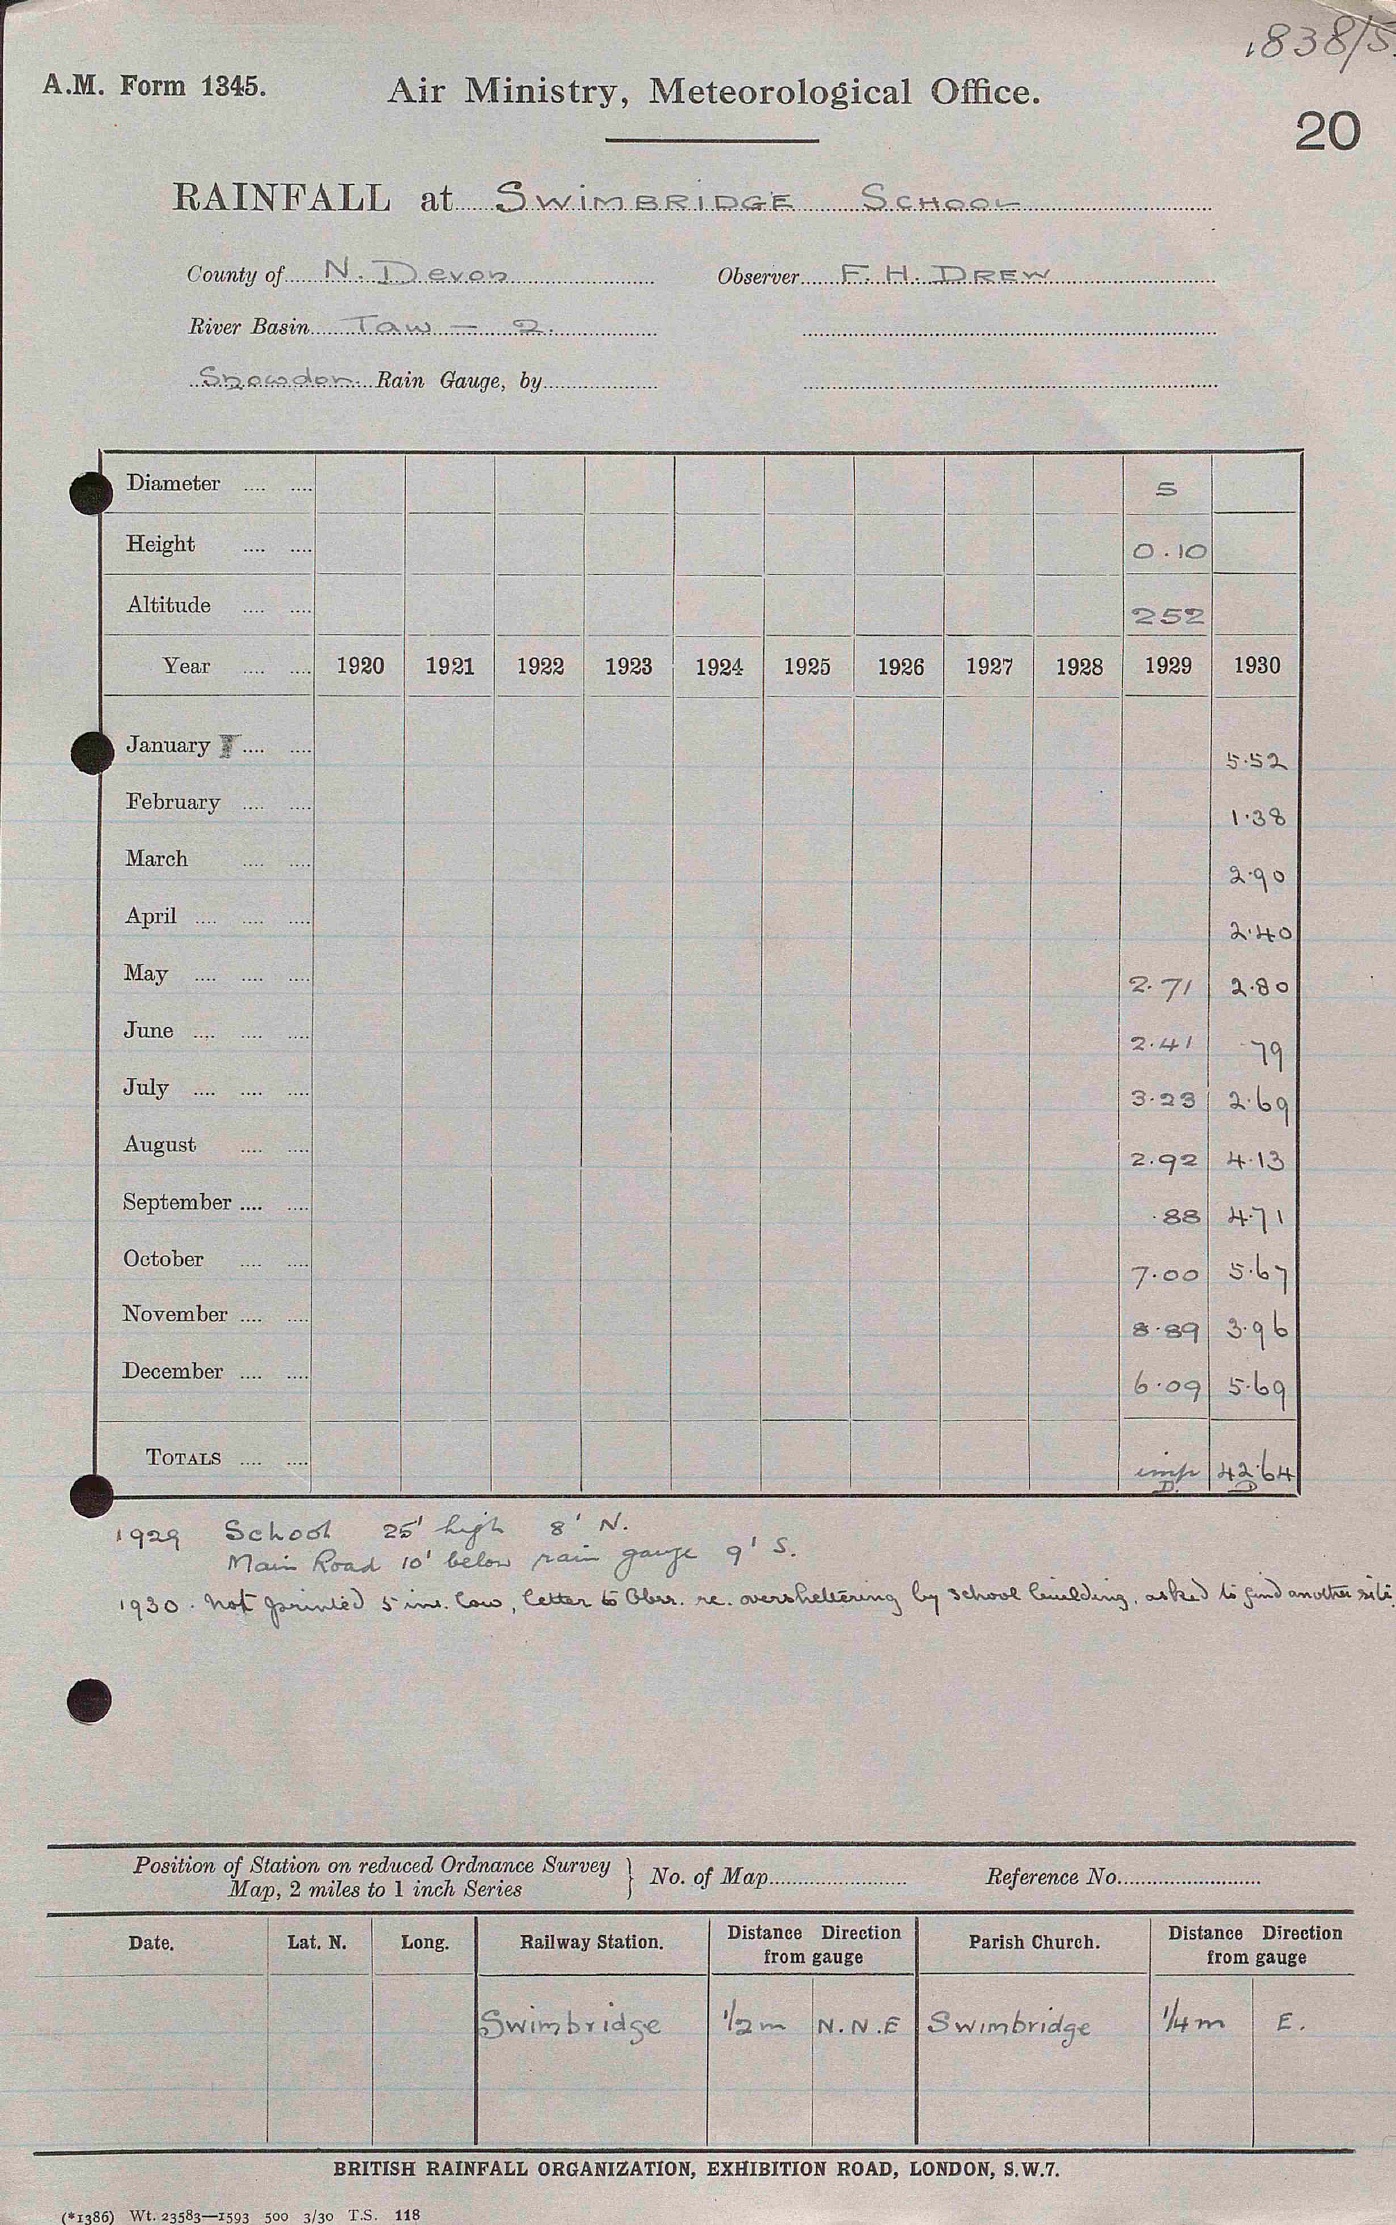 1838/5.
A.M. Form 1345.
Air Ministry, Meteorological Office.
20
RAINFALL at SWIMBRIDGE SCHOOL
County of N. Devon Observer F. H. DREW
River Basin Taw — 2.
Snowdon Rain Gauge, by
Diameter 5
Height 0.10
Altitude 252
Year 1920 1921 1922 1923 1924 1925 1926 1927 1928 1929 1930
January 5.52
February 1.38
March 2.90
April 2.40
May 2.71 2.80
June 2.41 .79
July 3.23 2.69
August 2.92 4.13
September .88 4.71
October 7.00 5.67
November 8.89 3.96
December 6.09 5.69
TOTALS imp 42.64
D. D
1929 School 25' high 8' N.
Main Road 10' below rain gauge 9' S.
1930. Not printed 5 ins. low, letter to Obsr. re. oversheltering by school building, asked to find another site.
Position of Station on reduced Ordnance Survey
Map, 2 miles to 1 inch Series } No. of Map Reference No.
Date. Lat. N. Long. Railway Station. Distance Direction from gauge Parish Church. Distance Direction from gauge
Swimbridge 1/2 m N.N.E Swimbridge 1/4 m E.
BRITISH RAINFALL ORGANIZATION, EXHIBITION ROAD, LONDON, S.W.7.
(*1386) Wt. 23583—1593 500 3/30 T.S. 118